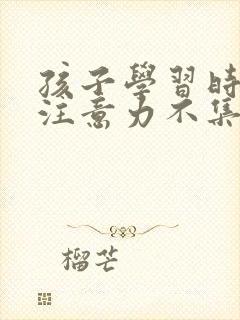 孩子學習時
注意力不集
榴芒